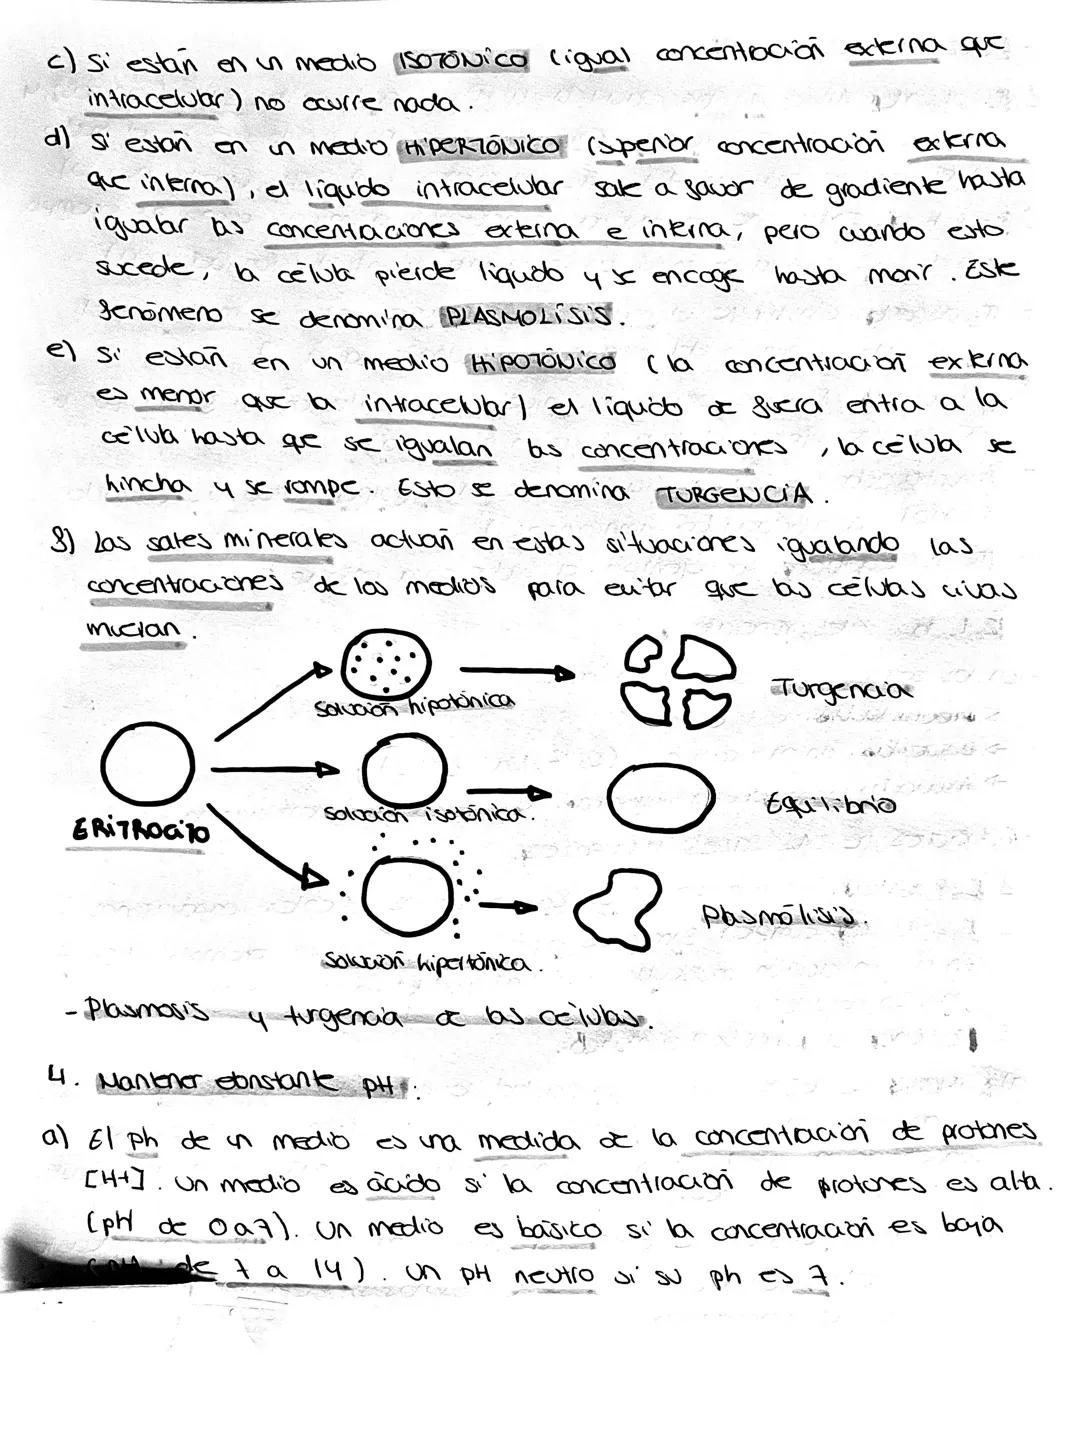 c) Si están en un medio ISOTÓNICO (igual concentración externa que
intracelular) no ocurre nada.
d) Si están en un medio HIPERTÓNICO (superior concentración externa
que interna), el líquido intracelular sale a favor de gradiente hasta
igualar las concentraciones externa e interna, pero cuando esto
sucede, la célula pierde líquido y se encoge hasta morir. Este
fenómeno se denomina PLASMOLÍSIS.
e) Si están en un medio HIPOTÓNICO (la concentración externa
es menor que la intracelular) el líquido de fuera entra a la
célula hasta que se igualan las concentraciones, la célula se
hincha y se rompe. Esto se denomina TURGENCIA.
f) Las sales minerales actuán en estas situaciones igualando las
concentraciones de los medios para evitar que las células vivas
mueran.
Solución hipotónica
Turgencia
Solución isotónica.
Equilibrio
ERITROCITO
Plasmólisis.
Solución hipertónica.
- Plasmosis y turgencia de las células.
4. Mantener constante pH:
a) El ph de un medio es una medida de la concentración de protones
[H+]. Un medio es ácido si la concentración de protones es alta.
(pH de 0 a 7). Un medio es básico si la concentración es baja
(pH de 7 a 14). Un pH neutro si su ph es 7.